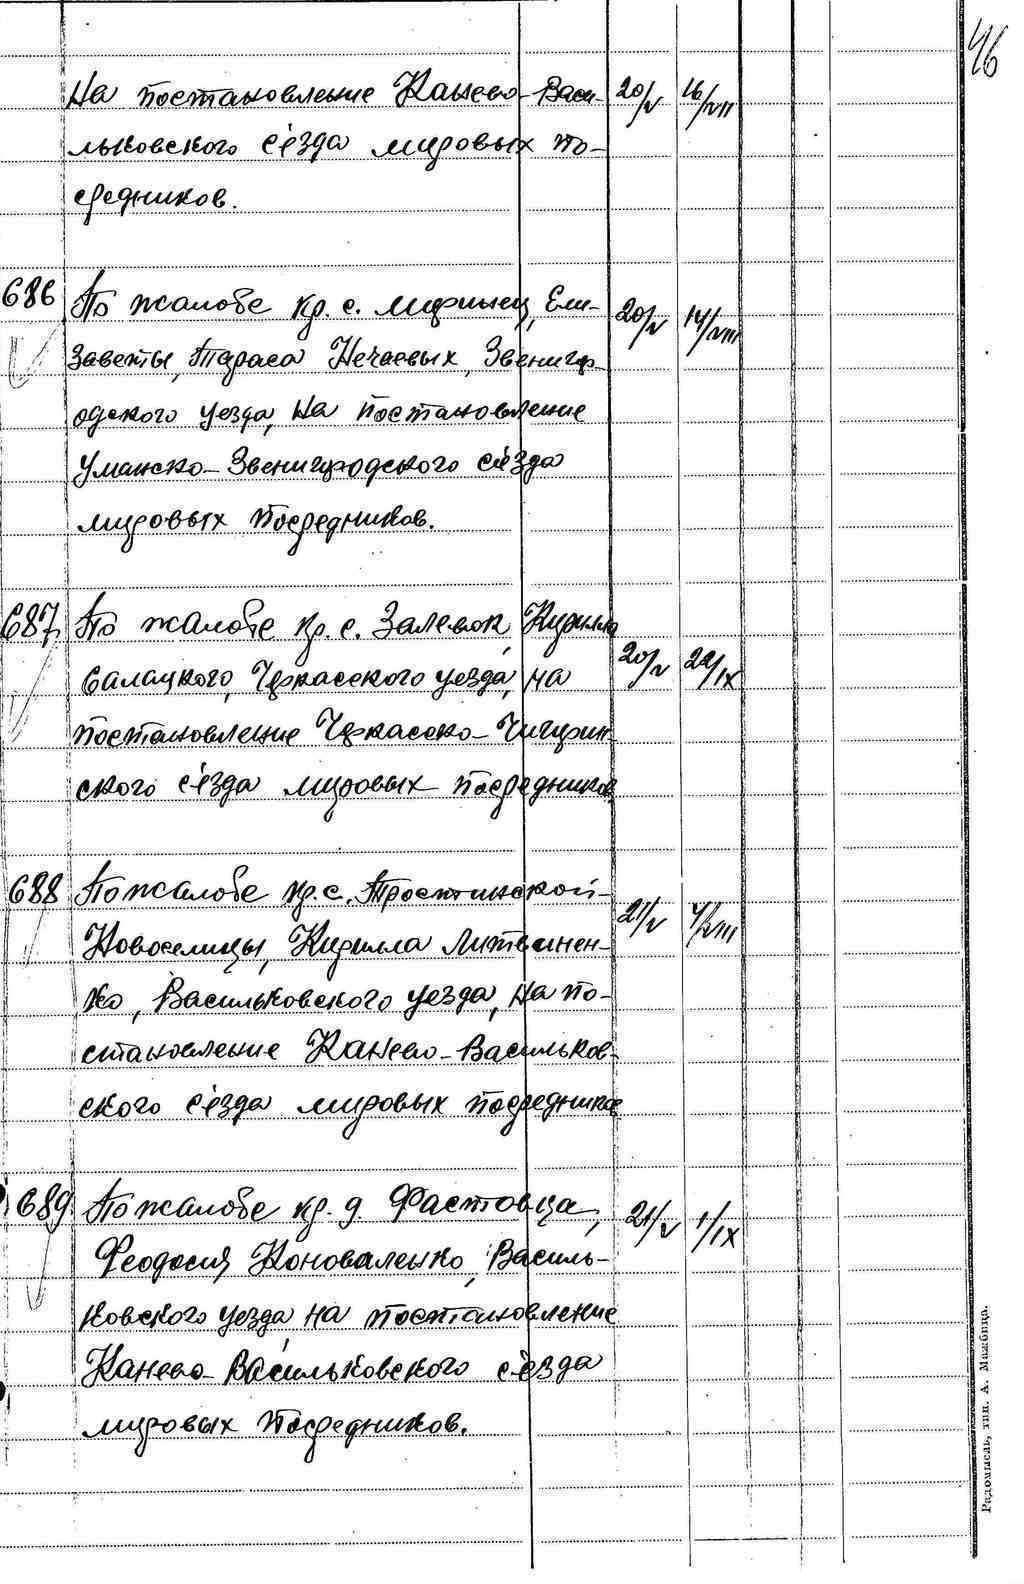 46
На постановление Канево-Васи- 20/V 16/VII
льковского съезда мировых по-
средников.
686 По жалобе кр. с. Мифинец, Ели- 20/V 14/VIII
заветы, Тараса Нечаевых, Звениго-
одского уезда, на постановление
Уманско-Звенигородского съезда
мировых посредников.
687 По жалобе кр. с. Залевок, Кирилла
Салацкого, Черкасского уезда, на 20/V 22/IX
постановление Черкасско-Чигирин-
ского съезда мировых посредников
688 По жалобе кр. с. Тростинской-
Новоселицы, Кирилла Литвинен- 21/V 4/VIII
ко, Васильковского уезда, на по-
становление Канево-Васильков-
ского съезда мировых посредников
689 По жалобе кр. д. Фастовца, 21/V 1/IX
Феодосия Коноваленко, Василь-
ковского уезда на постановление
Канево-Васильковского съезда
мировых посредников.
Радомысль, тип. А. Мажбица.